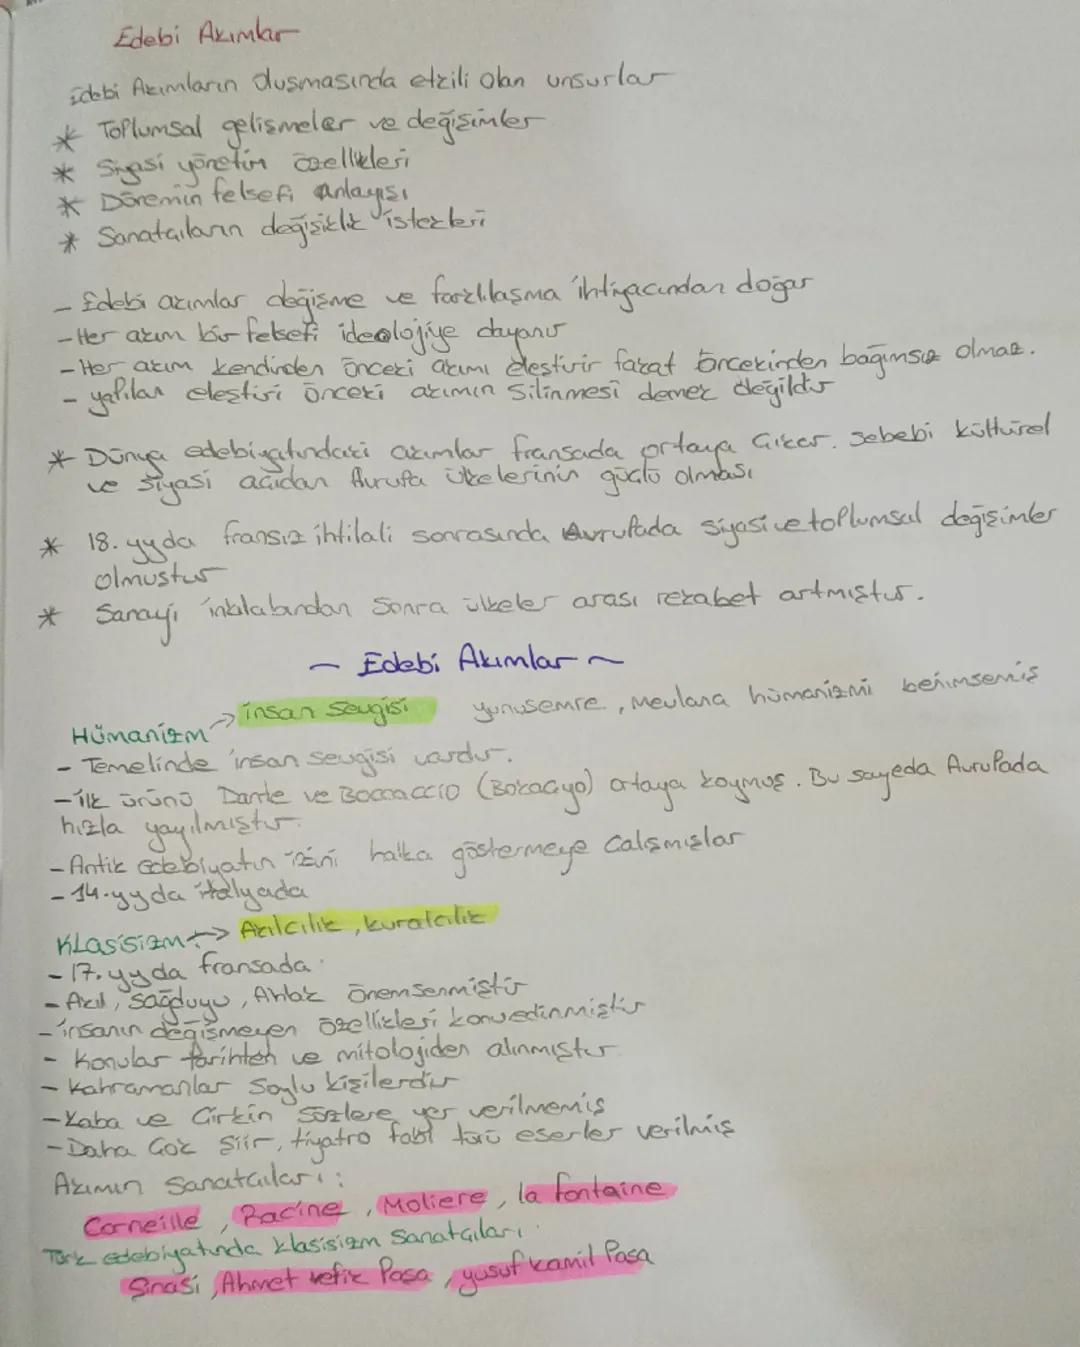 Edebi Akımlar
Edebi Akımların oluşmasında etkili olan unsurlar
* Toplumsal gelişmeler ve değişimler
* Siyasi yönetim özellikleri
* Dönemin felsefi anlayışı
* Sanatçıların değişiklik istekleri
- Edebi akımlar değişme ve farklılaşma ihtiyacından doğar
- Her akım bir felsefi ideolojiye dayanır
- Her akım kendinden önceki akımı eleştirir fakat öncekinden bağımsız olmaz.
- yapılan eleştiri önceki akımın silinmesi demek değildir
* Dünya edebiyatındaki akımlar fransada ortaya çıkar. Sebebi kültürel
ve siyasi açıdan Avrupa ülkelerinin güçlü olması
* 18. yyda fransız ihtilali sonrasında Avrupada siyasi ve toplumsal değişimler
olmuştur
* Sanayi inkılabından sonra ülkeler arası rekabet artmıştır.
~ Edebi Akımlar ~
HÜmanizm → insan sevgisi yunusemre, Mevlana hümanizmi benimsemiş
- Temelinde insan sevgisi vardır.
- ilk ürünü Dante ve Boccaccio (Bokaçyo) ortaya koymuş. Bu sayeda Avrupada
hızla yayılmıştır.
- Antik edebiyatın izini halka göstermeye çalışmışlar
- 14.yyda italyada
KLasisizm → Akılcılık, kuralcılık
- 17. yyda fransada
- Akıl, Sağduyu, Ahlak önemsenmiştir
- insanın değişmeyen özellikleri konuedinmiştir
- Konular tarihten ve mitolojiden alınmıştır
- Kahramanlar soylu kişilerdir
- Kaba ve Çirkin sözlere yer verilmemiş
- Daha çok şiir, tiyatro fabl türü eserler verilmiş
Akımın Sanatçıları:
Corneille, Racine, Moliere, la fontaine
Türk edebiyatında klasisizm Sanatçıları
Şinasi, Ahmet vefik Paşa, yusuf kamil Paşa